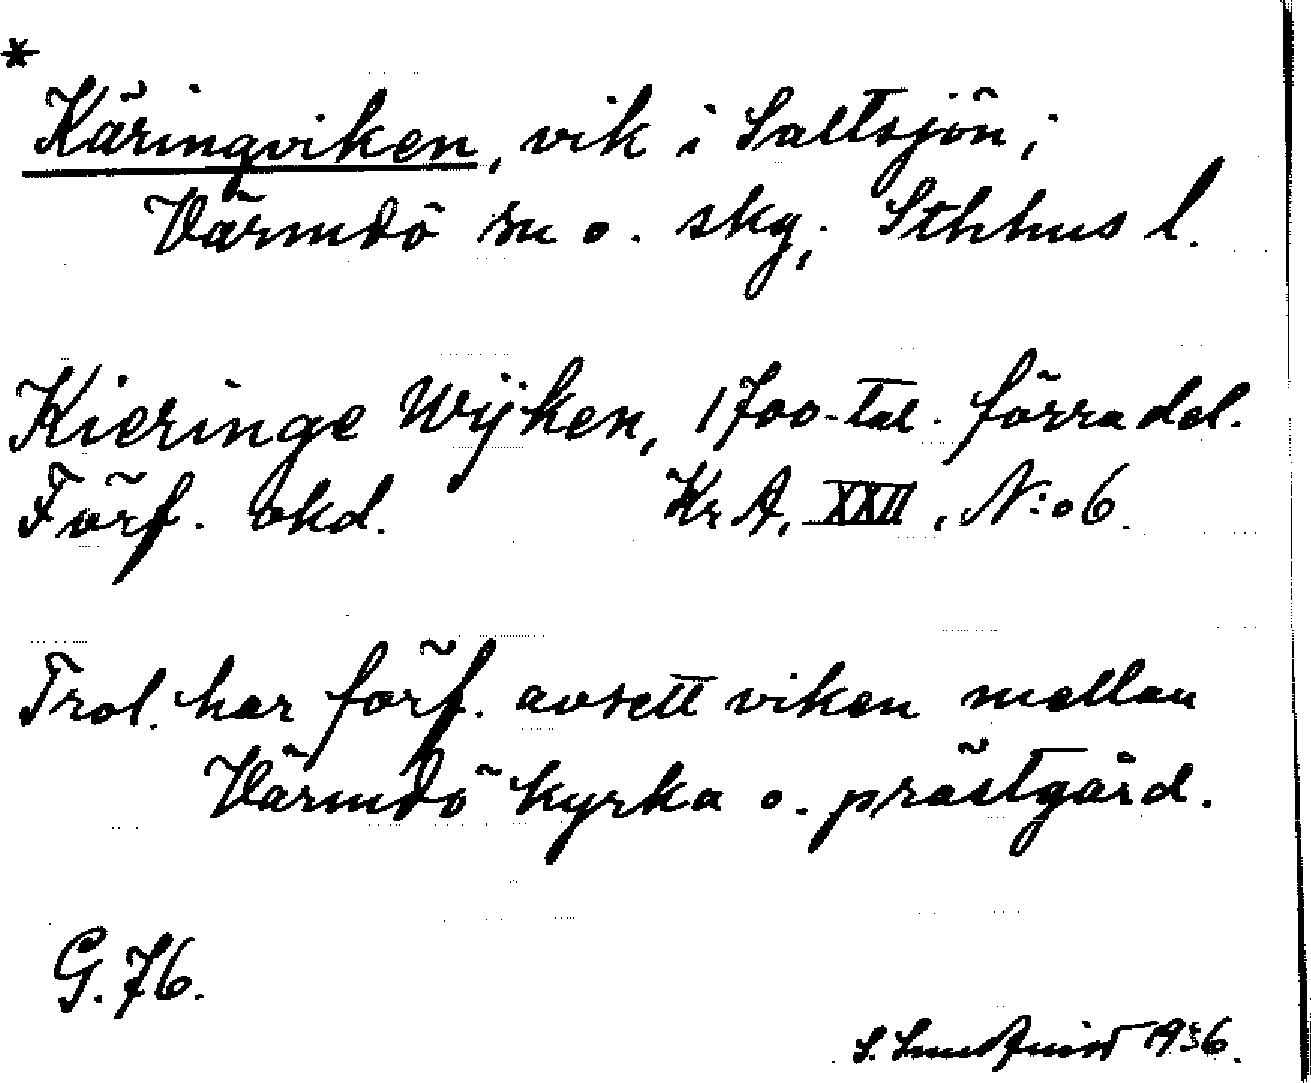 *
Käringviken, vik i Saltsjön;
Värmdö sn o. skg; Sthhus l.
Kieringe Wijken, 1700-tal. förra del.
Förf. okd. Kr A. XXII, N:o 6.
Trol. har förf. avsett viken mellan
Värmdö kyrka o. prästgård.
G. 76.
S. 1936.